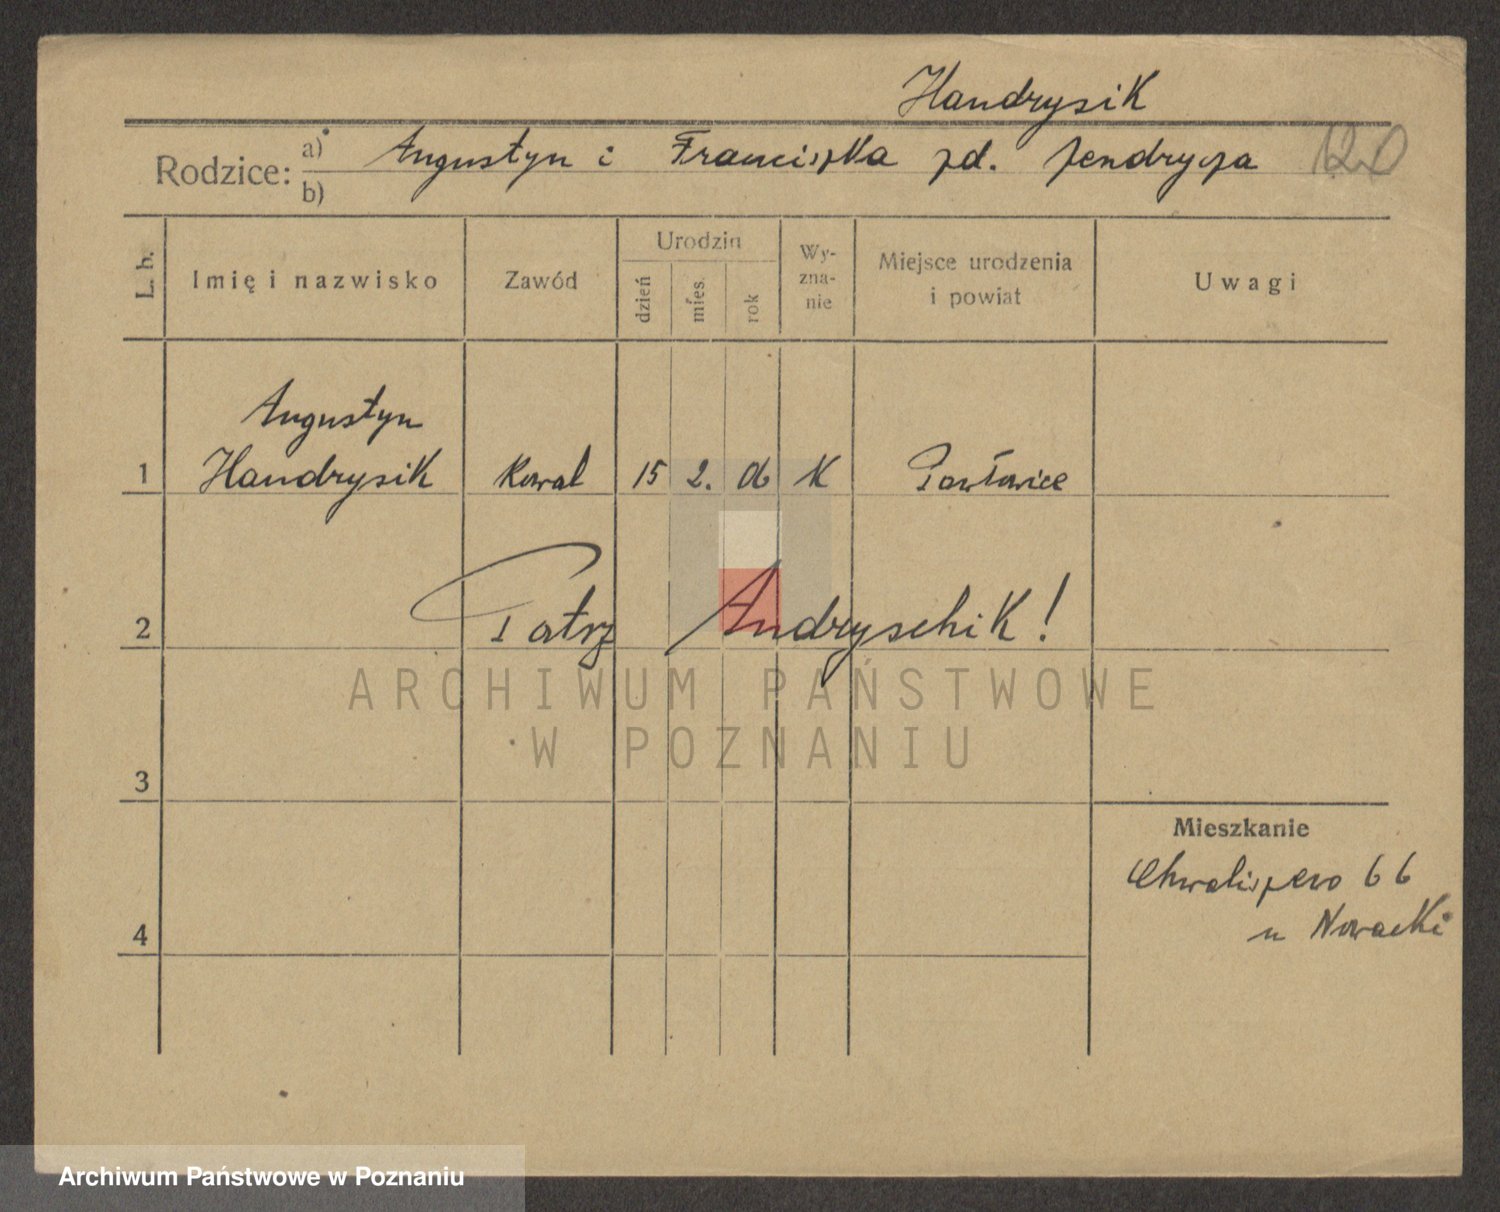 Handrysik
Rodzice: a) Augustyn i Franciszka zd. Jendrycza 120
b)
L. b. Imię i nazwisko Zawód Urodzin dzień mies. rok Wyznanie Miejsce urodzenia i powiat Uwagi
Augustyn
1 Handrysik Kowal 15 2. 06 K Pawłowice
2 Patrz Andryschik!
ARCHIWUM PAŃSTWOWE
W POZNANIU
3
Mieszkanie
Chwaliszewo 66
4 u Nowacki
Archiwum Państwowe w Poznaniu